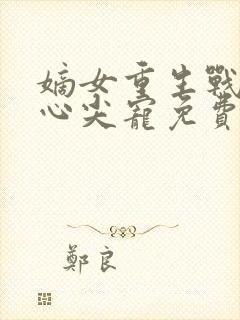 嫡女重生戰
心尖寵免費
鄭良